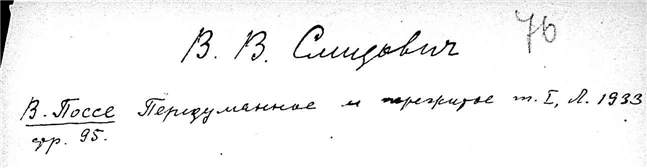 76
В. В. Смидович
В. Поссе Передуманное и пережитое т. I, Л. 1933
стр. 95.